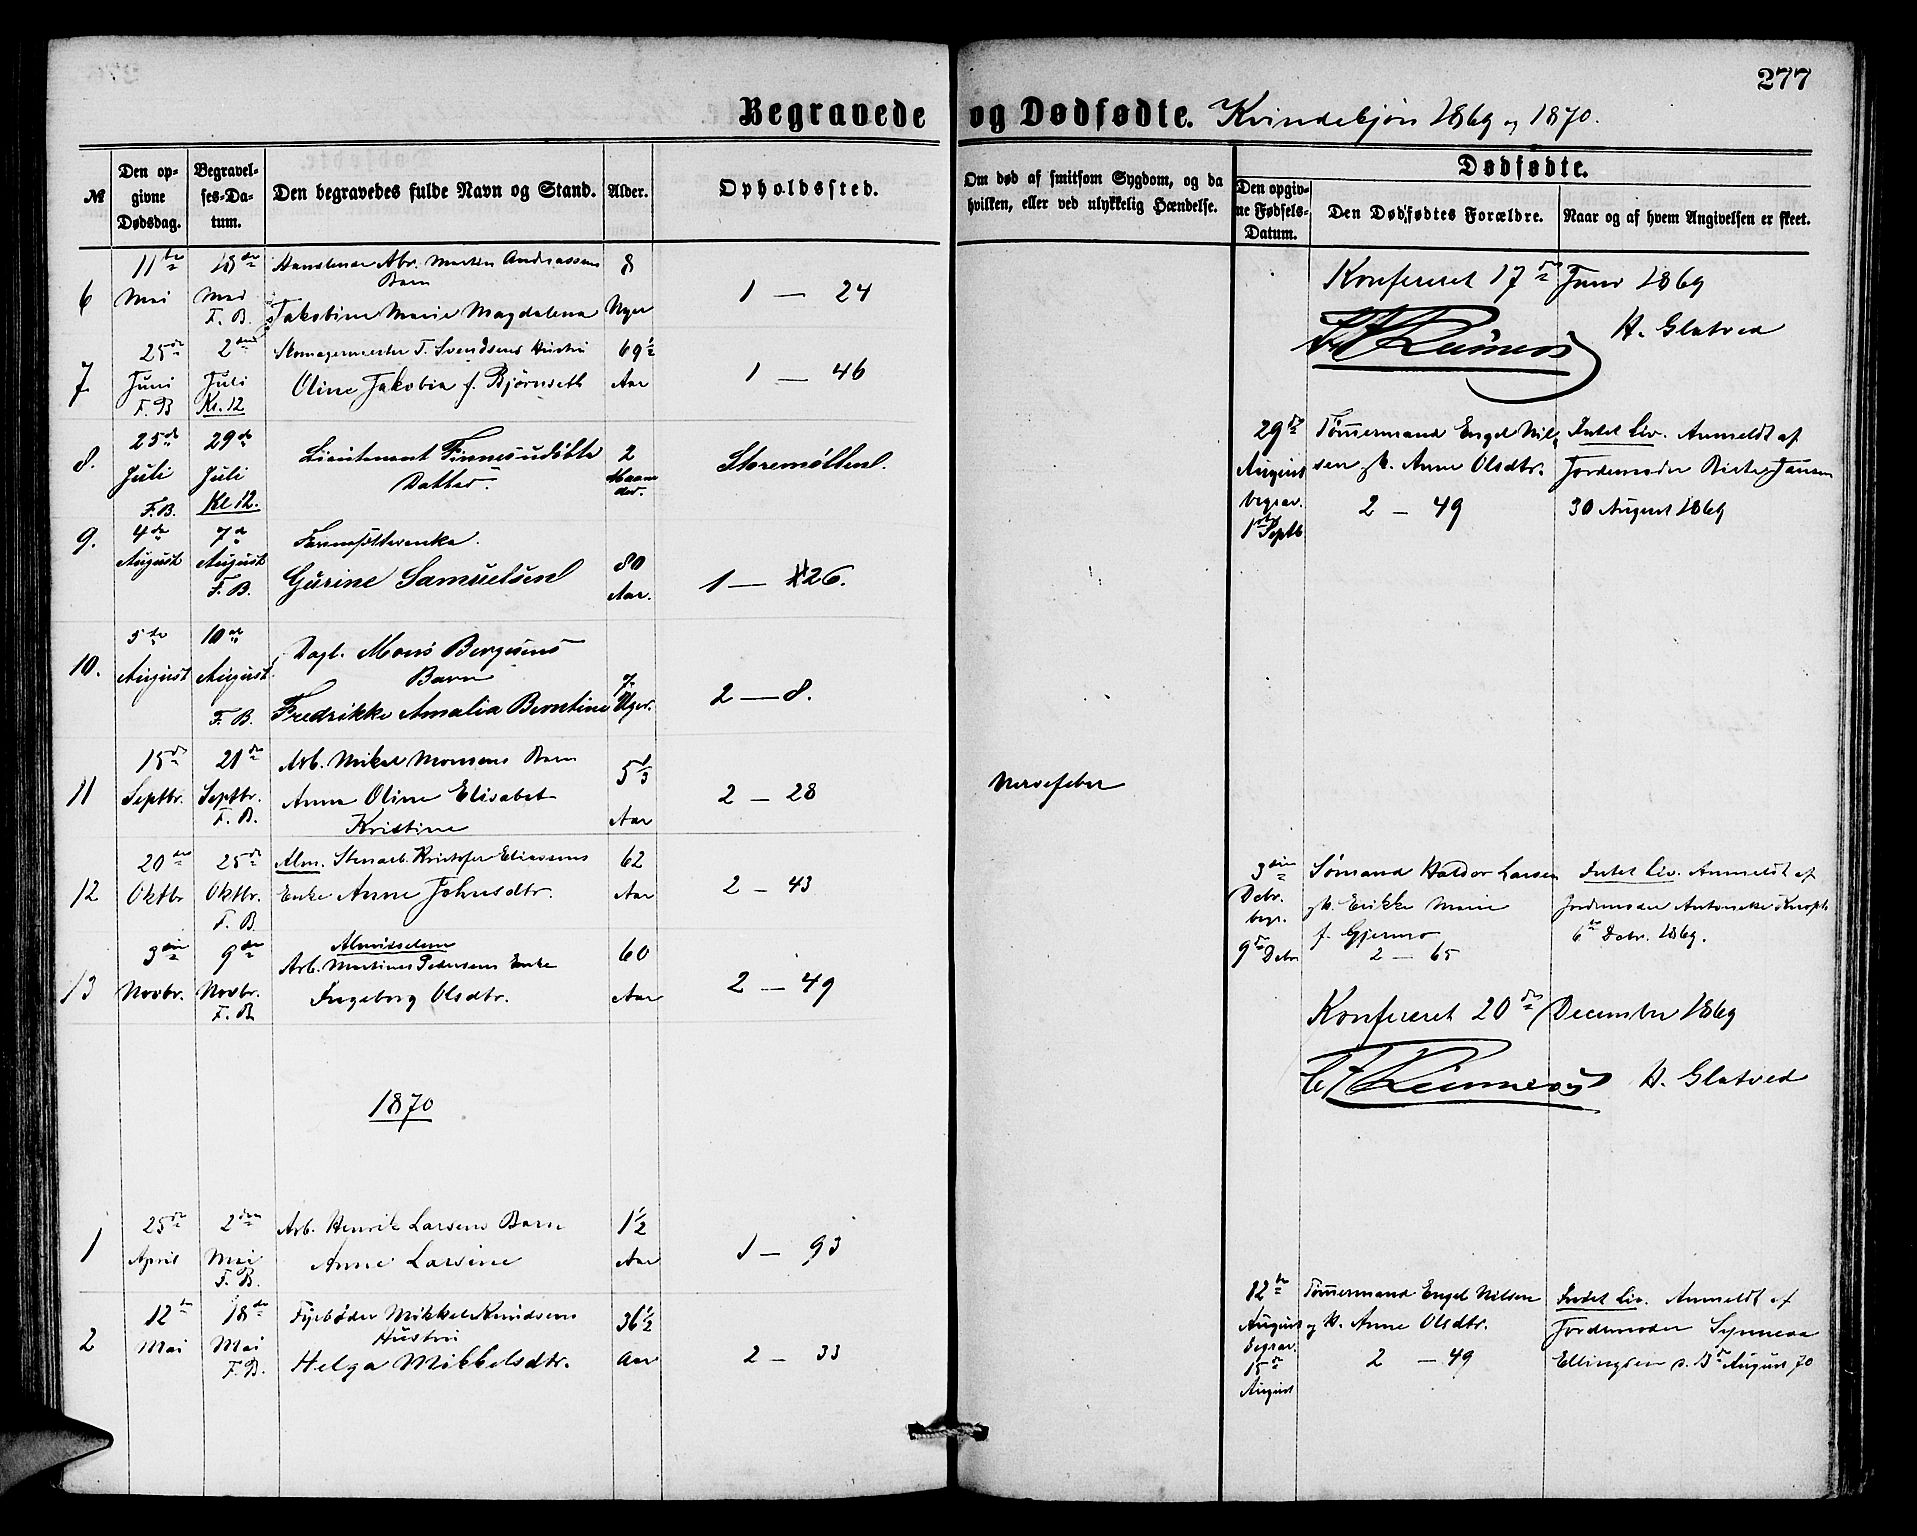 277
Begravede og Dødfødte. Kvindekjøn 1869 og 1870.
№
Den opgivne Dødsdag.
Begravelses-Datum.
Den begravedes fulde Navn og Stand.
Alder.
Opholdssted.
Om død af smitsom Sygdom, og da hvilken, eller ved ulykkelig Hændelse.
Dødfødte.
Den opgivne Fødsels-Datum.
Den Dødfødtes Forældre.
Naar og af hvem Angivelsen er skeet.
6
11te Mai
18de Mai F. B.
Abr. Martin Andreassens
Barn
Jakobine Marie Magdalena
8 Uger
1 — 24
7.
25de Juni F. B
2den Juli Kl. 12
Skomagermester T. Svendsens Hustru
Oline Jakobia f. Bjørnseth
69½ Aar
1 — 46
8.
25de Juli F. B.
29de Juli Kl 12.
Lieutenant
Datter.
2 Maaneder.
Storemøllen.
9.
4de August
7de August F. B.
Gurine Samuelsen
80 Aar.
1 — 126.
10.
5te August
10de August F. B.
Dagl. Mons Bergesens
Barn
Fredrikke Amalia Berntine
7 Uger.
2 — 8.
11
15de Septbr.
21de Septbr. F. B.
Arb. Mikal Monsens Barn
Anna Oline Elisabet
Kristine
5⅓ Aar
2 — 28
Nervefeber
12
20de Oktbr
25de Oktbr. F. B
Alm. Stenarb. Kristofer Eliassens
Enke Anne Johnsdtr.
62 Aar
2 — 43
13
3die Novbr.
9de Novbr. F. B
Almisselem
Arb. Martinus Pedersens Enke
Ingeborg Olsdtr.
60 Aar
2 — 49
1870
1
25de April
2den Mai F. B.
Arb. Henrik Larsens Barn
Anne Larsine
1½ Aar
1 — 93
2
12te Mai
18de Mai F. B.
Fyrbøder Mikkel Knudsens
Hustru
Helga Mikkelsdtr.
36½ Aar
2 — 33
Konfereret 17de Juni 1869
H. Glatved
29de August begrav. 1ste Septb
Tømmermand Engel Nilssen og H. Anne Olsdtr.
2 — 49
Intet Liv. Anmeldt af
Jordemoder Birte Jansen
30 August 1869
3die Debr. begr. 9de Debr
Sømand Haldor Larsen
og H. Erikke Marie
f. Gjermo
2 — 65
Intet Liv. Anmeldt af
Jordemoder Antonette
6te Debr. 1869.
Konfereret 20de December 1869
H. Glatved
12te August begrav. 15de August
Tømmermand Engel Nilsen
og H. Anne Olsdtr.
2 — 49
Intet Liv. Anmeldt af
Jordemoder Synneva
Ellingsen d. 13de August 70